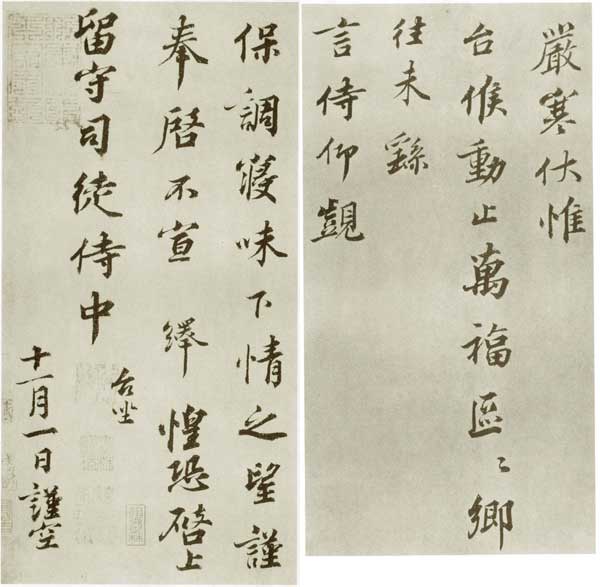 嚴寒伏惟
台候動止萬福區〻鄉
往未繇
言侍仰覬
保調寢味下情之望謹
奉啓不宣 繹 惶恐啓上
留守司徒侍中
台坐
十一月一日謹空